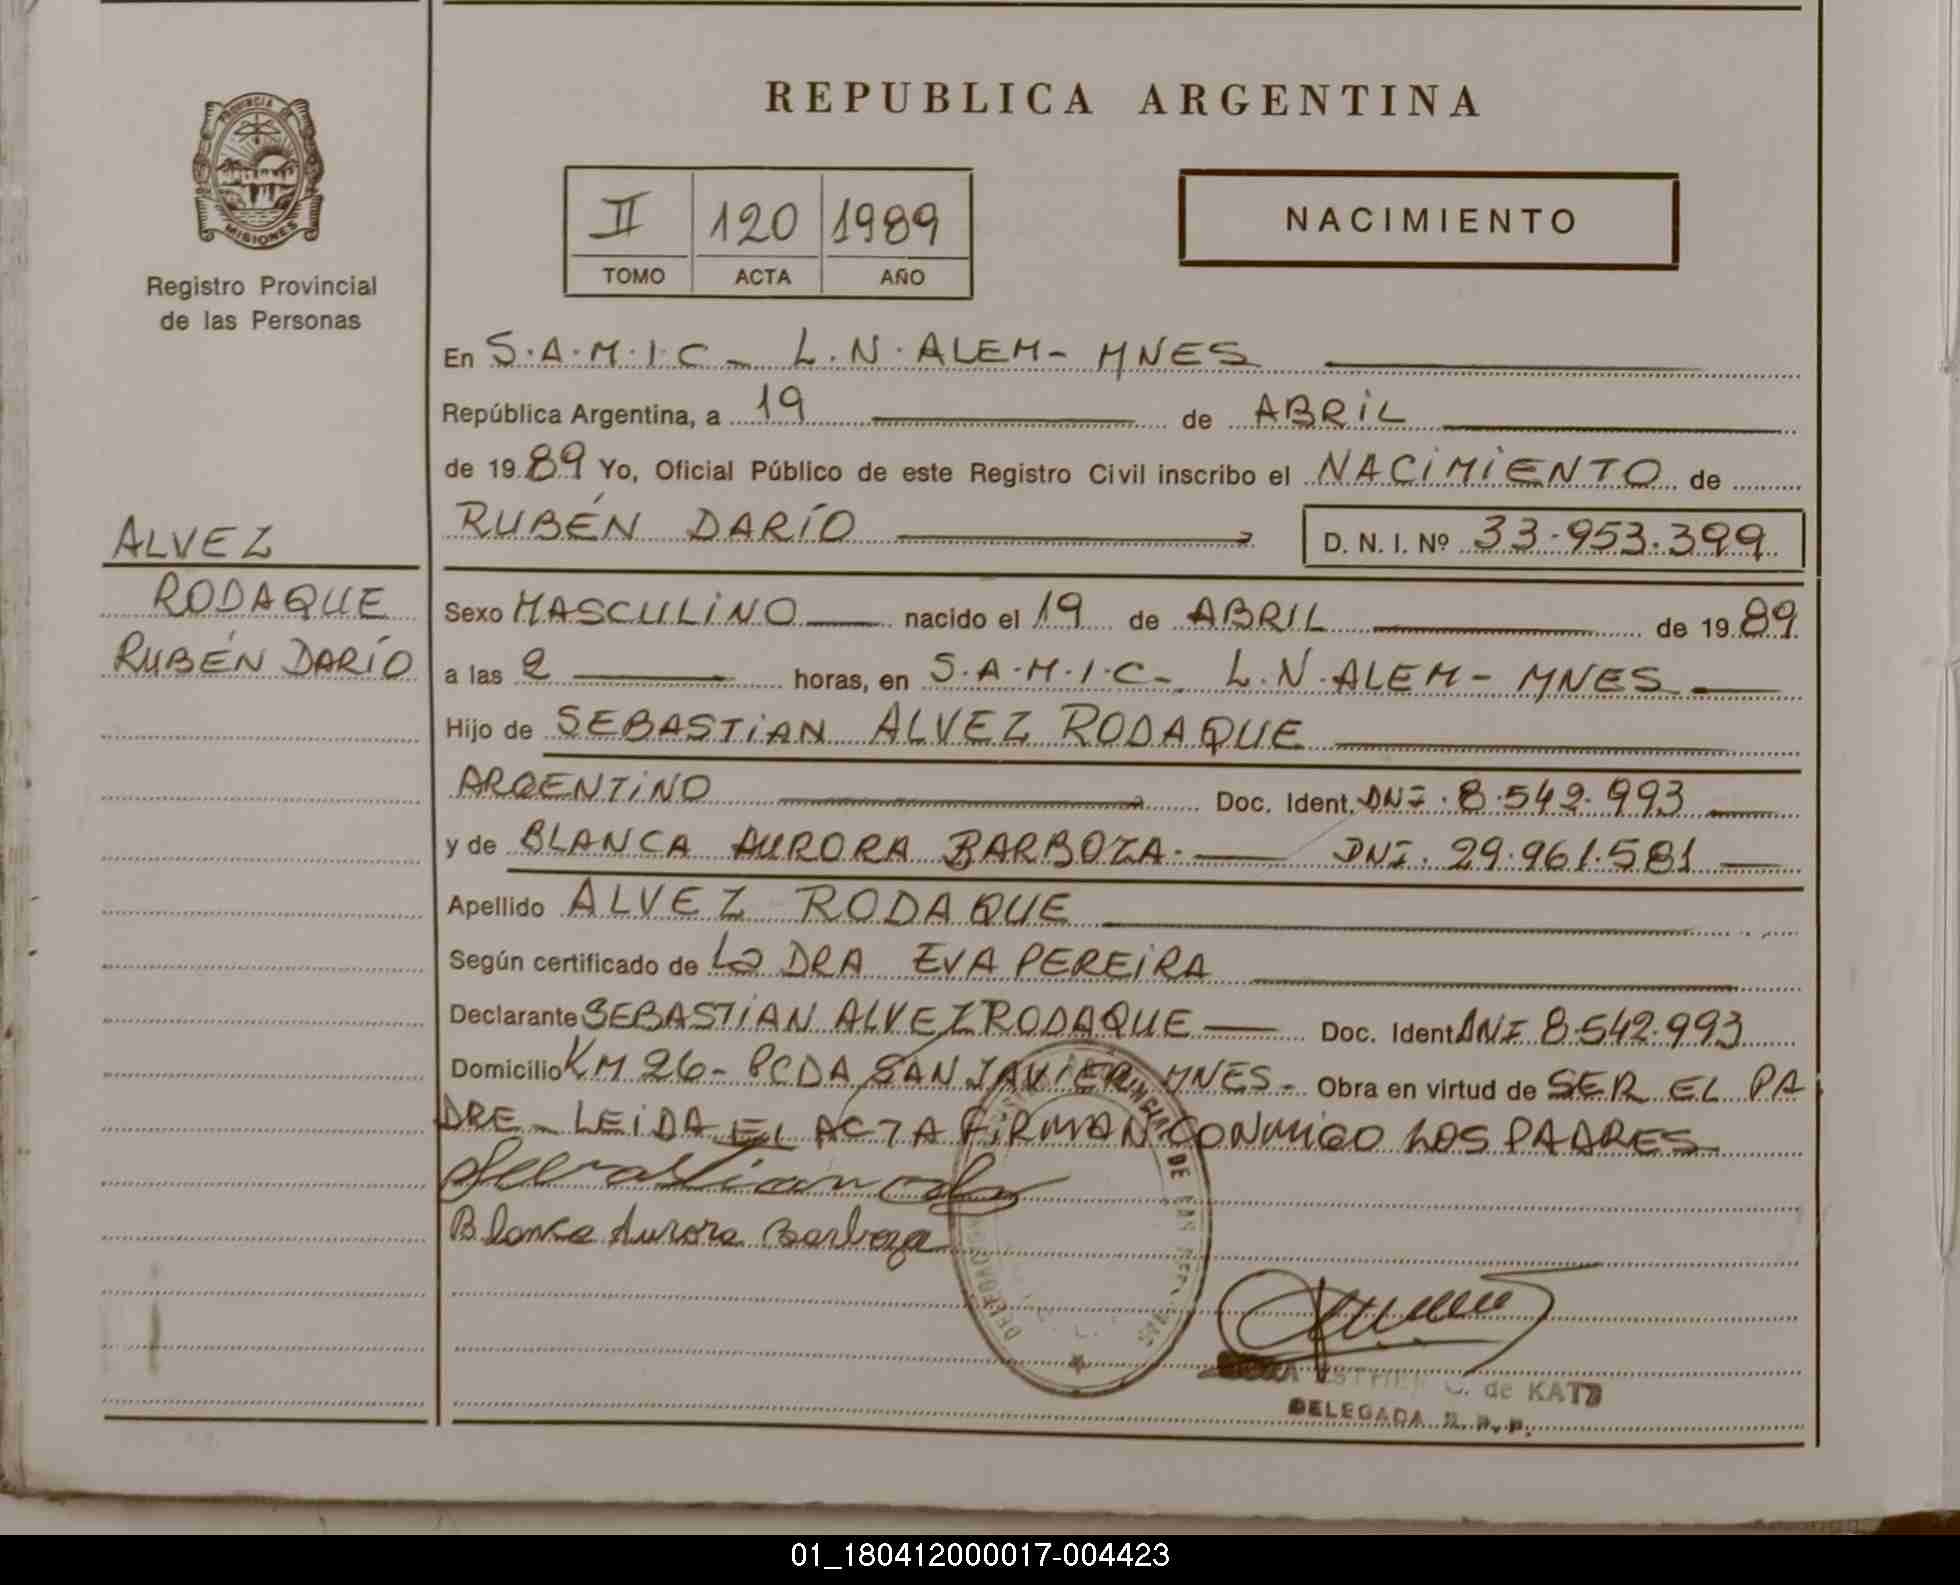 REPUBLICA ARGENTINA
PROVINCIA
MISIONES
Registro Provincial
de las Personas
II 120 1989
TOMO ACTA AÑO
NACIMIENTO
En S.A.M.I.C - L.N.ALEM - MNES
República Argentina, a 19 de ABRIL
de 1989 Yo, Oficial Público de este Registro Civil inscribo el NACIMIENTO de
RUBÉN DARÍO D. N. I. Nº 33.953.399
ALVEZ
RODAQUE
RUBÉN DARÍO
Sexo MASCULINO nacido el 19 de ABRIL de 1989
a las 2 horas, en S.A.M.I.C - L.N.ALEM - MNES
Hijo de SEBASTIAN ALVEZ RODAQUE
ARGENTINO Doc. Ident. DNI. 8.542.993
y de BLANCA AURORA BARBOZA. DNI. 29.961.581
Apellido ALVEZ RODAQUE
Según certificado de La DRA EVA PEREIRA
Declarante SEBASTIAN ALVEZ RODAQUE Doc. Ident DNI 8.542.993
Domicilio KM 26 - PCDA SAN JAVIER MNES - Obra en virtud de SER EL PA
DRE - LEIDA EL ACTA FIRMAN CONMIGO LOS PADRES
Blanca Aurora Barboza
de KATZ
DELEGADA R. P. P.
01_180412000017-004423